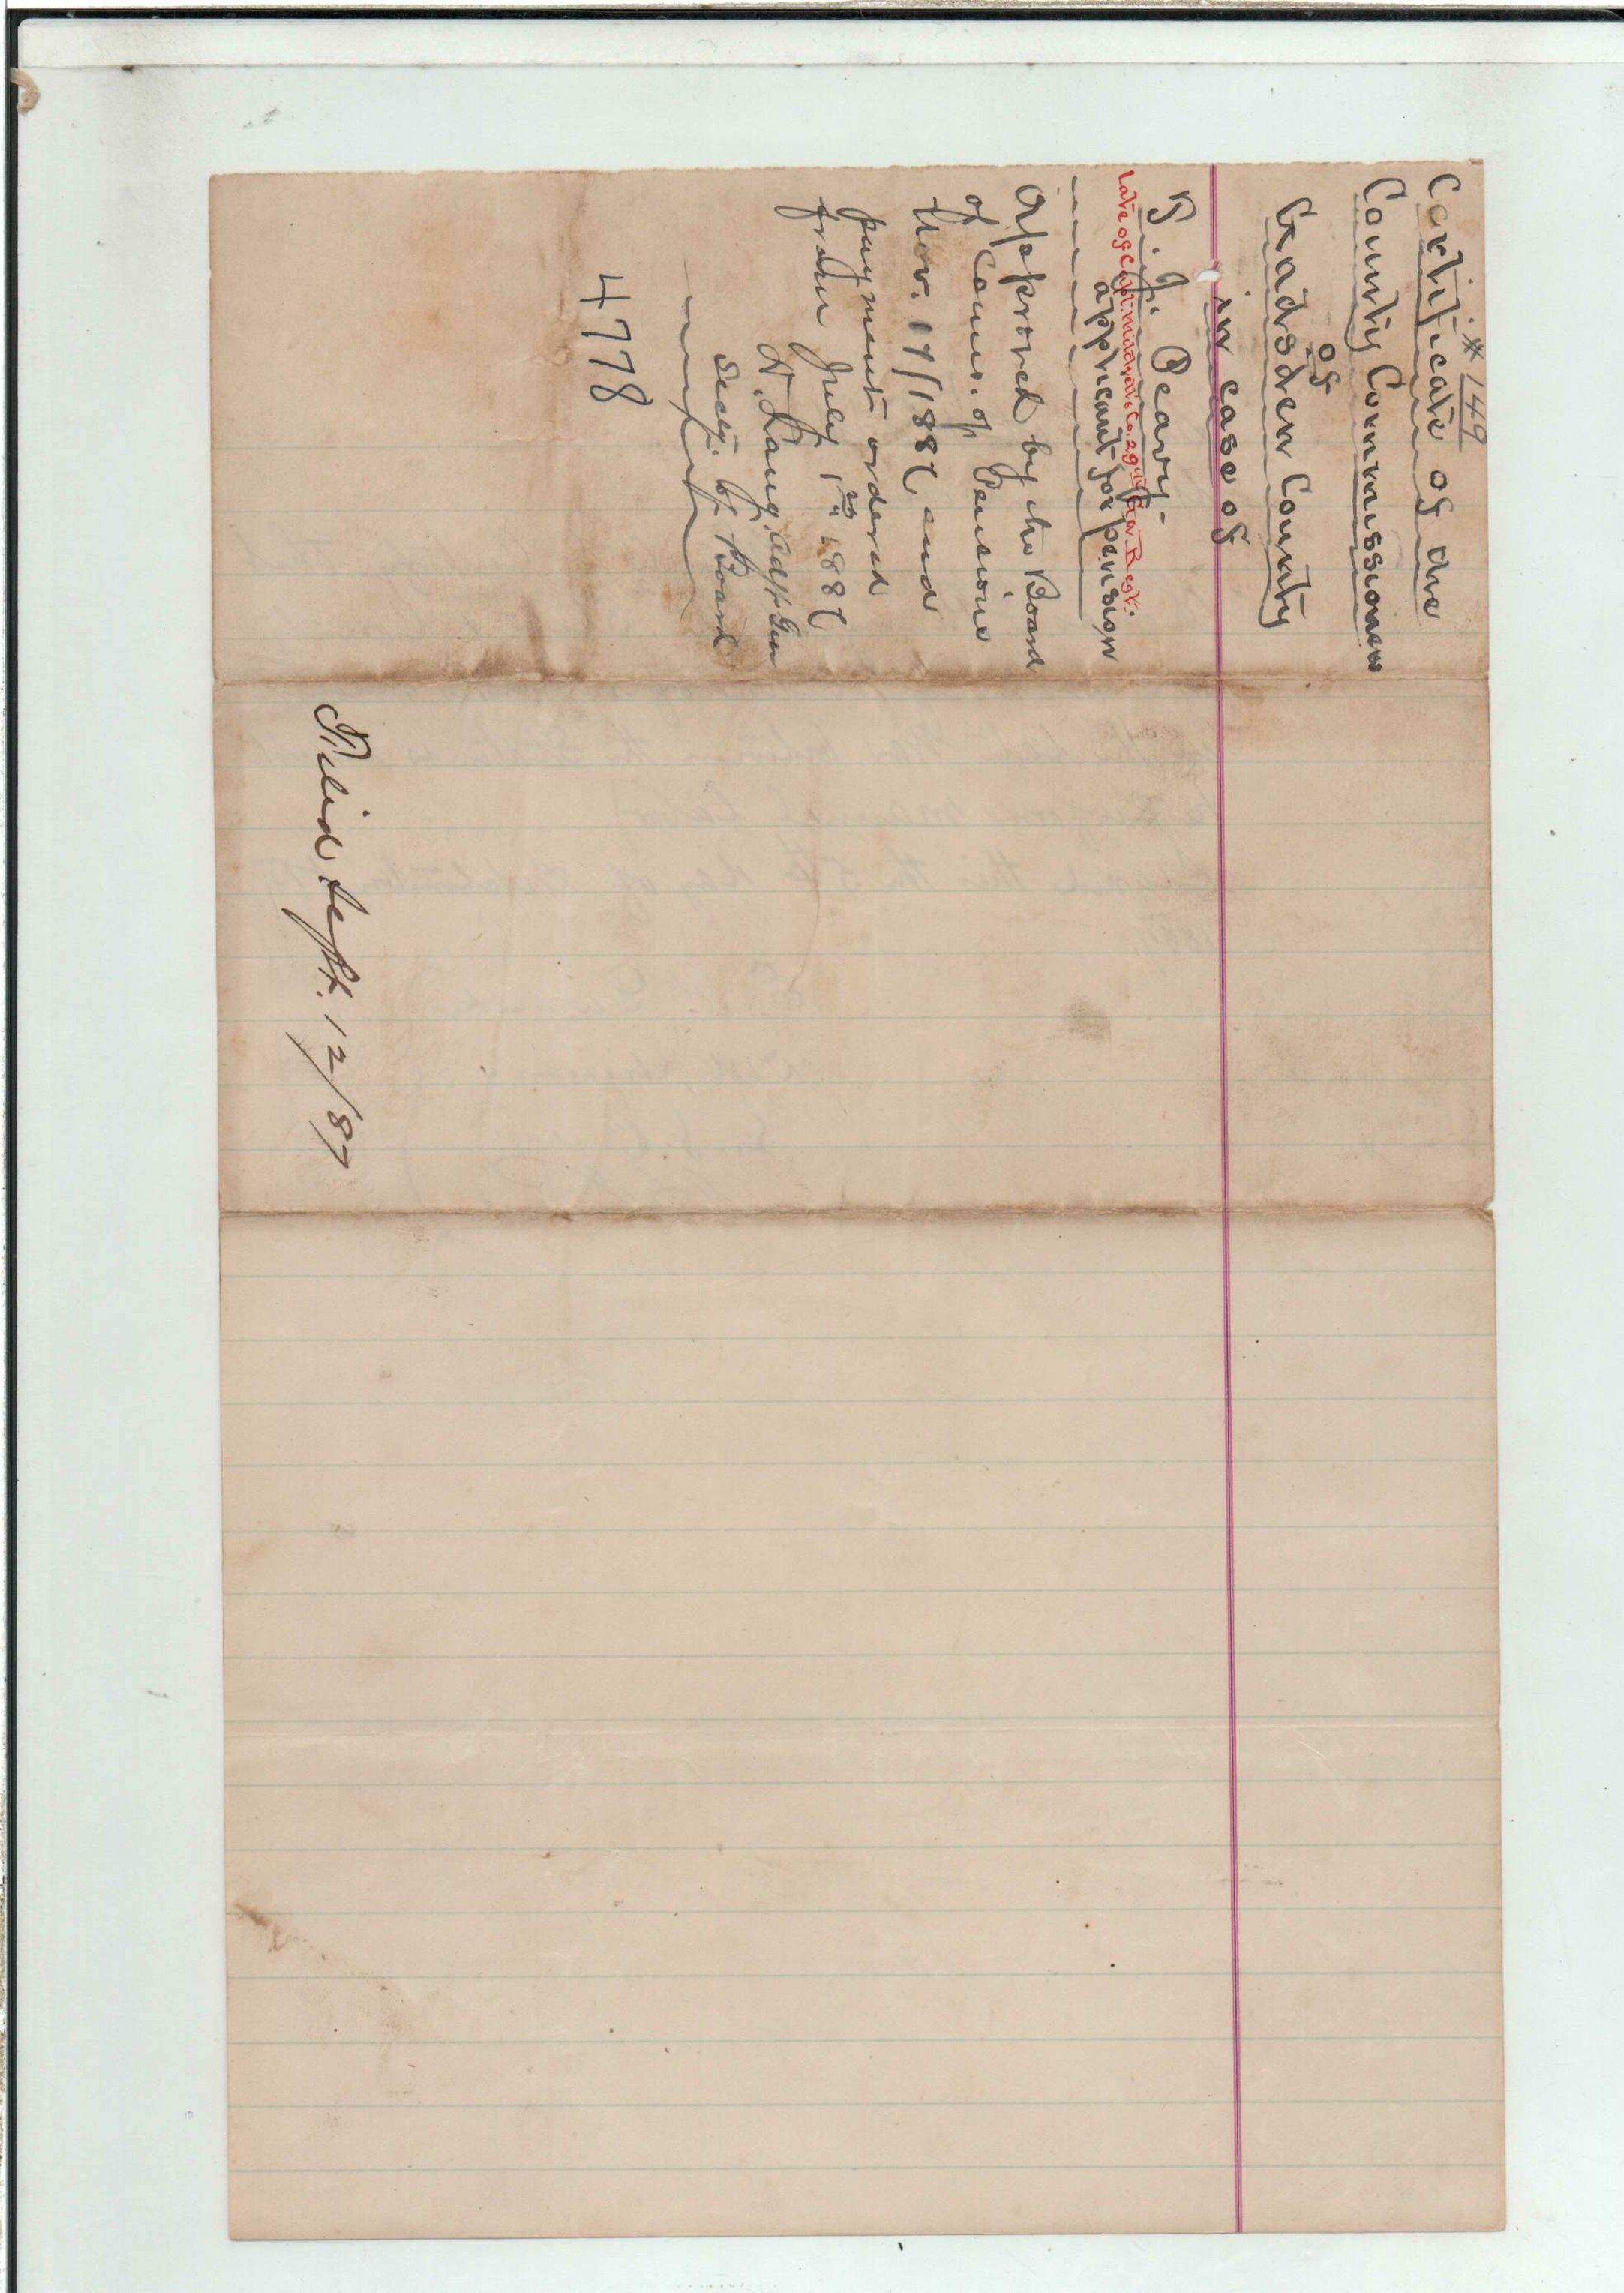 * 149
Certificate of the
County Commissioners
of
Gadsden County
in case of
B. J. Peavy-
Late of Capt. Co. 29th Ga Regt.
applicant for pension
Approved by the Board
of Comrs. of Pensions
Nov. 17/1887 and
payment ordered
from July 1st 1887
D. Lang. Adjt Gen
Secty. of Board
4778
Filed Sept. 12/87